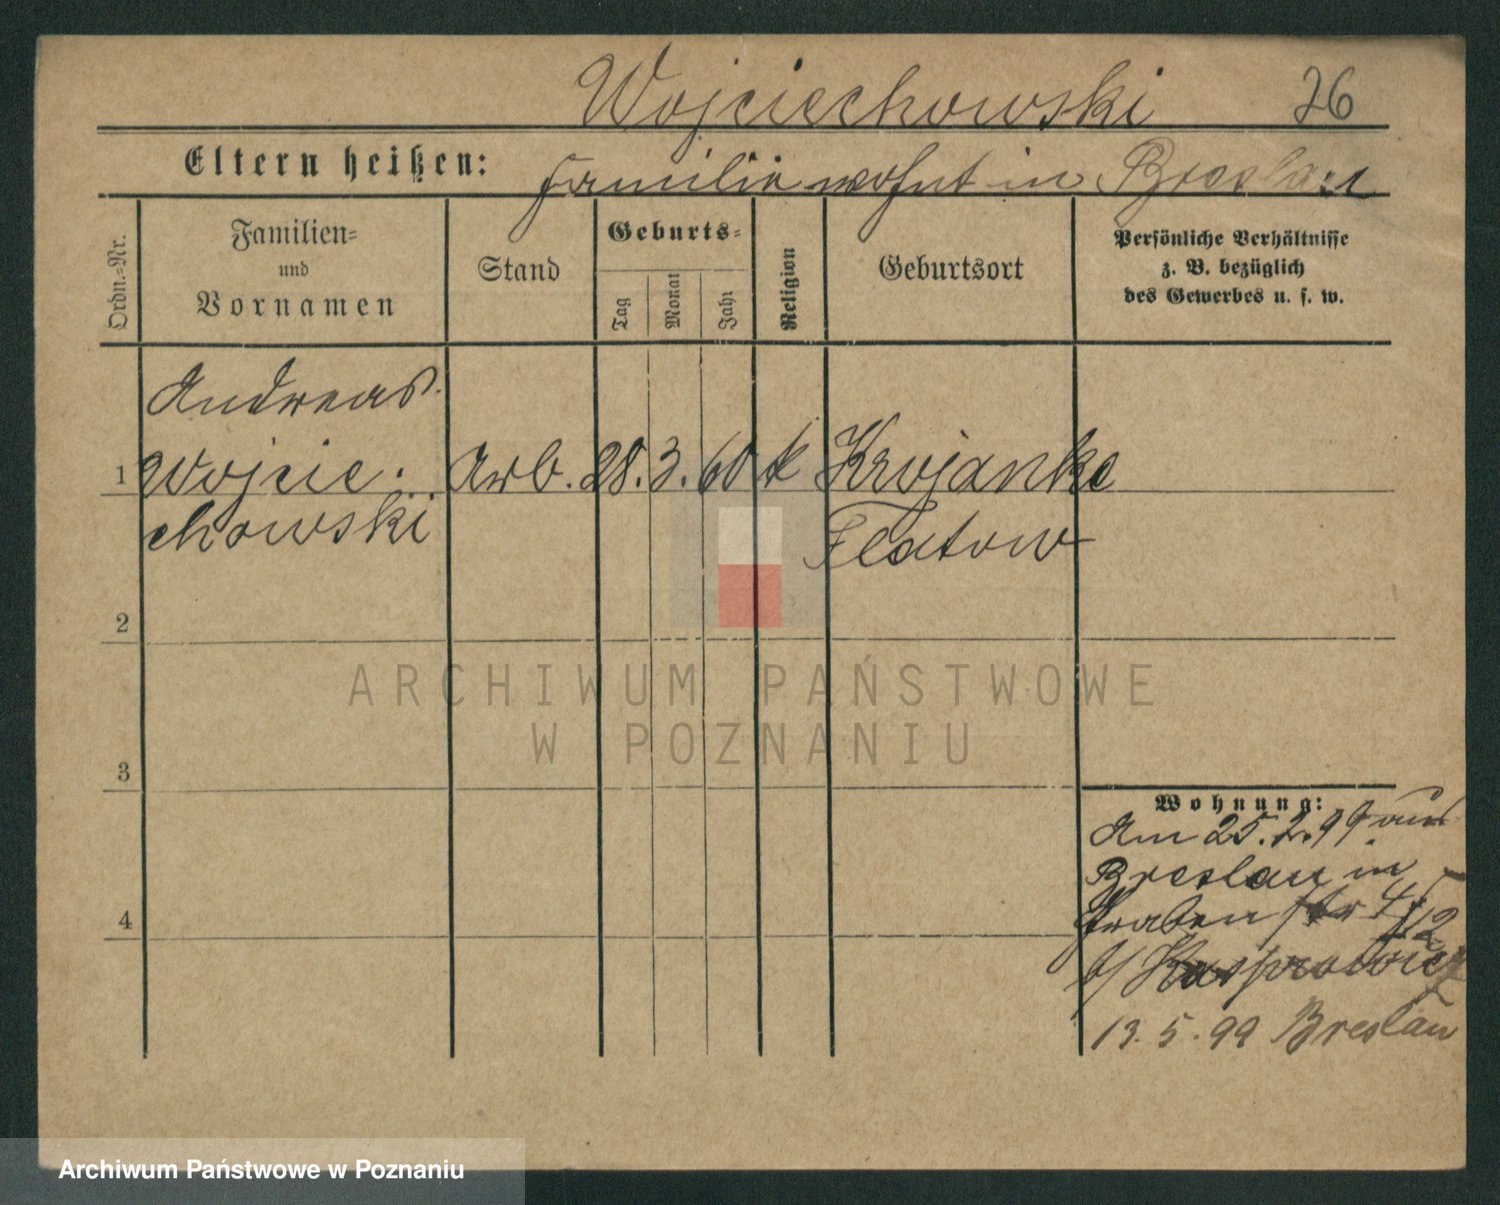 Wojciechowski 26
Eltern heißen: Familie wohnt in Breslau
Ordn.-Nr.
Familien-
und
Vornamen
Stand
Geburts-
Tag
Monat
Jahr
Religion
Geburtsort
Persönliche Verhältnisse
z. B. bezüglich
des Gewerbes u. s. w.
Andreas
1 Wojcie- Arb. 28. 3. 60 k Krojanke
chowski Flatow
2
ARCHIWUM PAŃSTWOWE
W POZNANIU
3
Wohnung:
Am 25. 2. 99 aus
Breslau in
4 Grabenstr 4
b/ Kasprowicz
13. 5. 99 Breslau
Archiwum Państwowe w Poznaniu